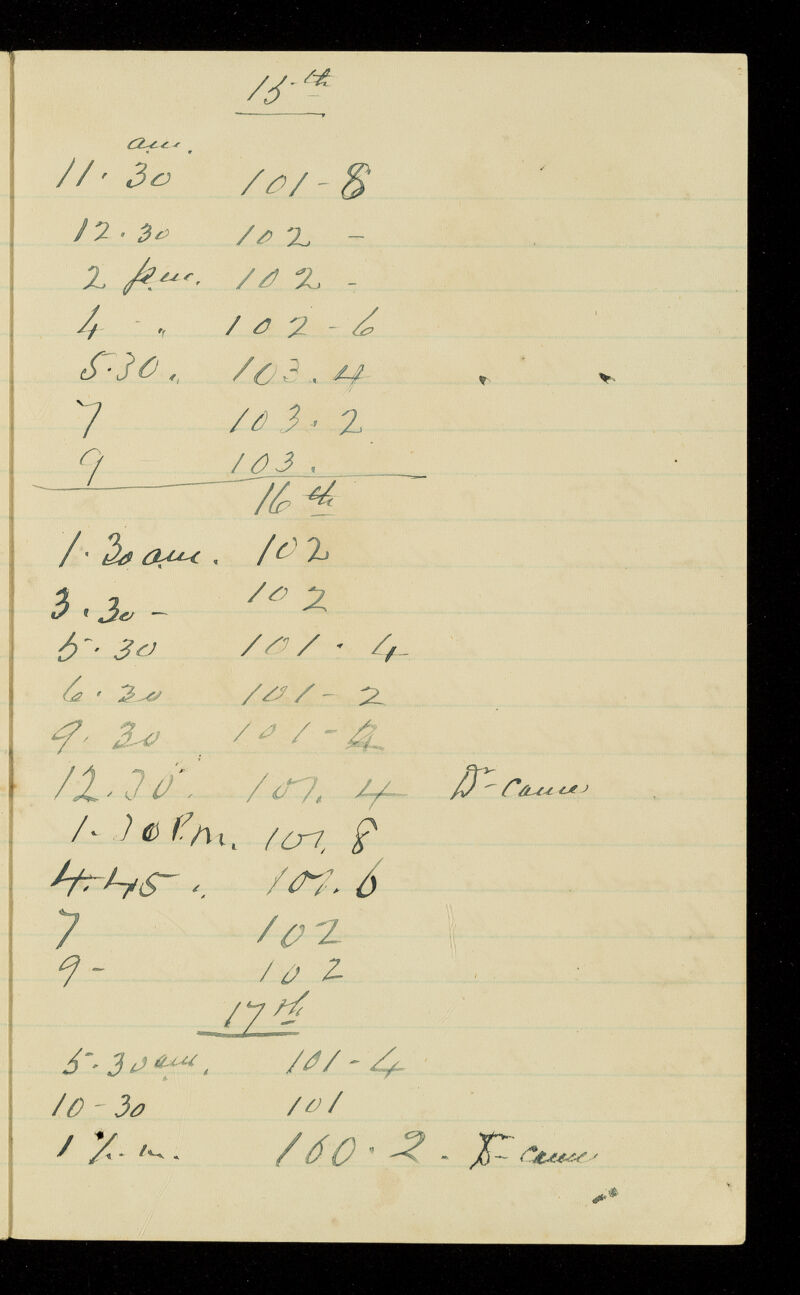 15th
am.
11.30 101-8
12.30 102 -
2 p.m. 102 -
4 - " 102-6
5.30 " 103.4
7 103.2
9 - 103.
16th
1.30 am. 102
3.30 - 102
5.30 101.4
6.30 101-2
9.30 101-2
12.30. 101.4 Dr- came
1.30 P.m. 101.8
4.45 " 101.6
7 102
9 - 102
17th
5.30 am. 101-4
10-30 101
1 p.m. 100.2. Dr- came